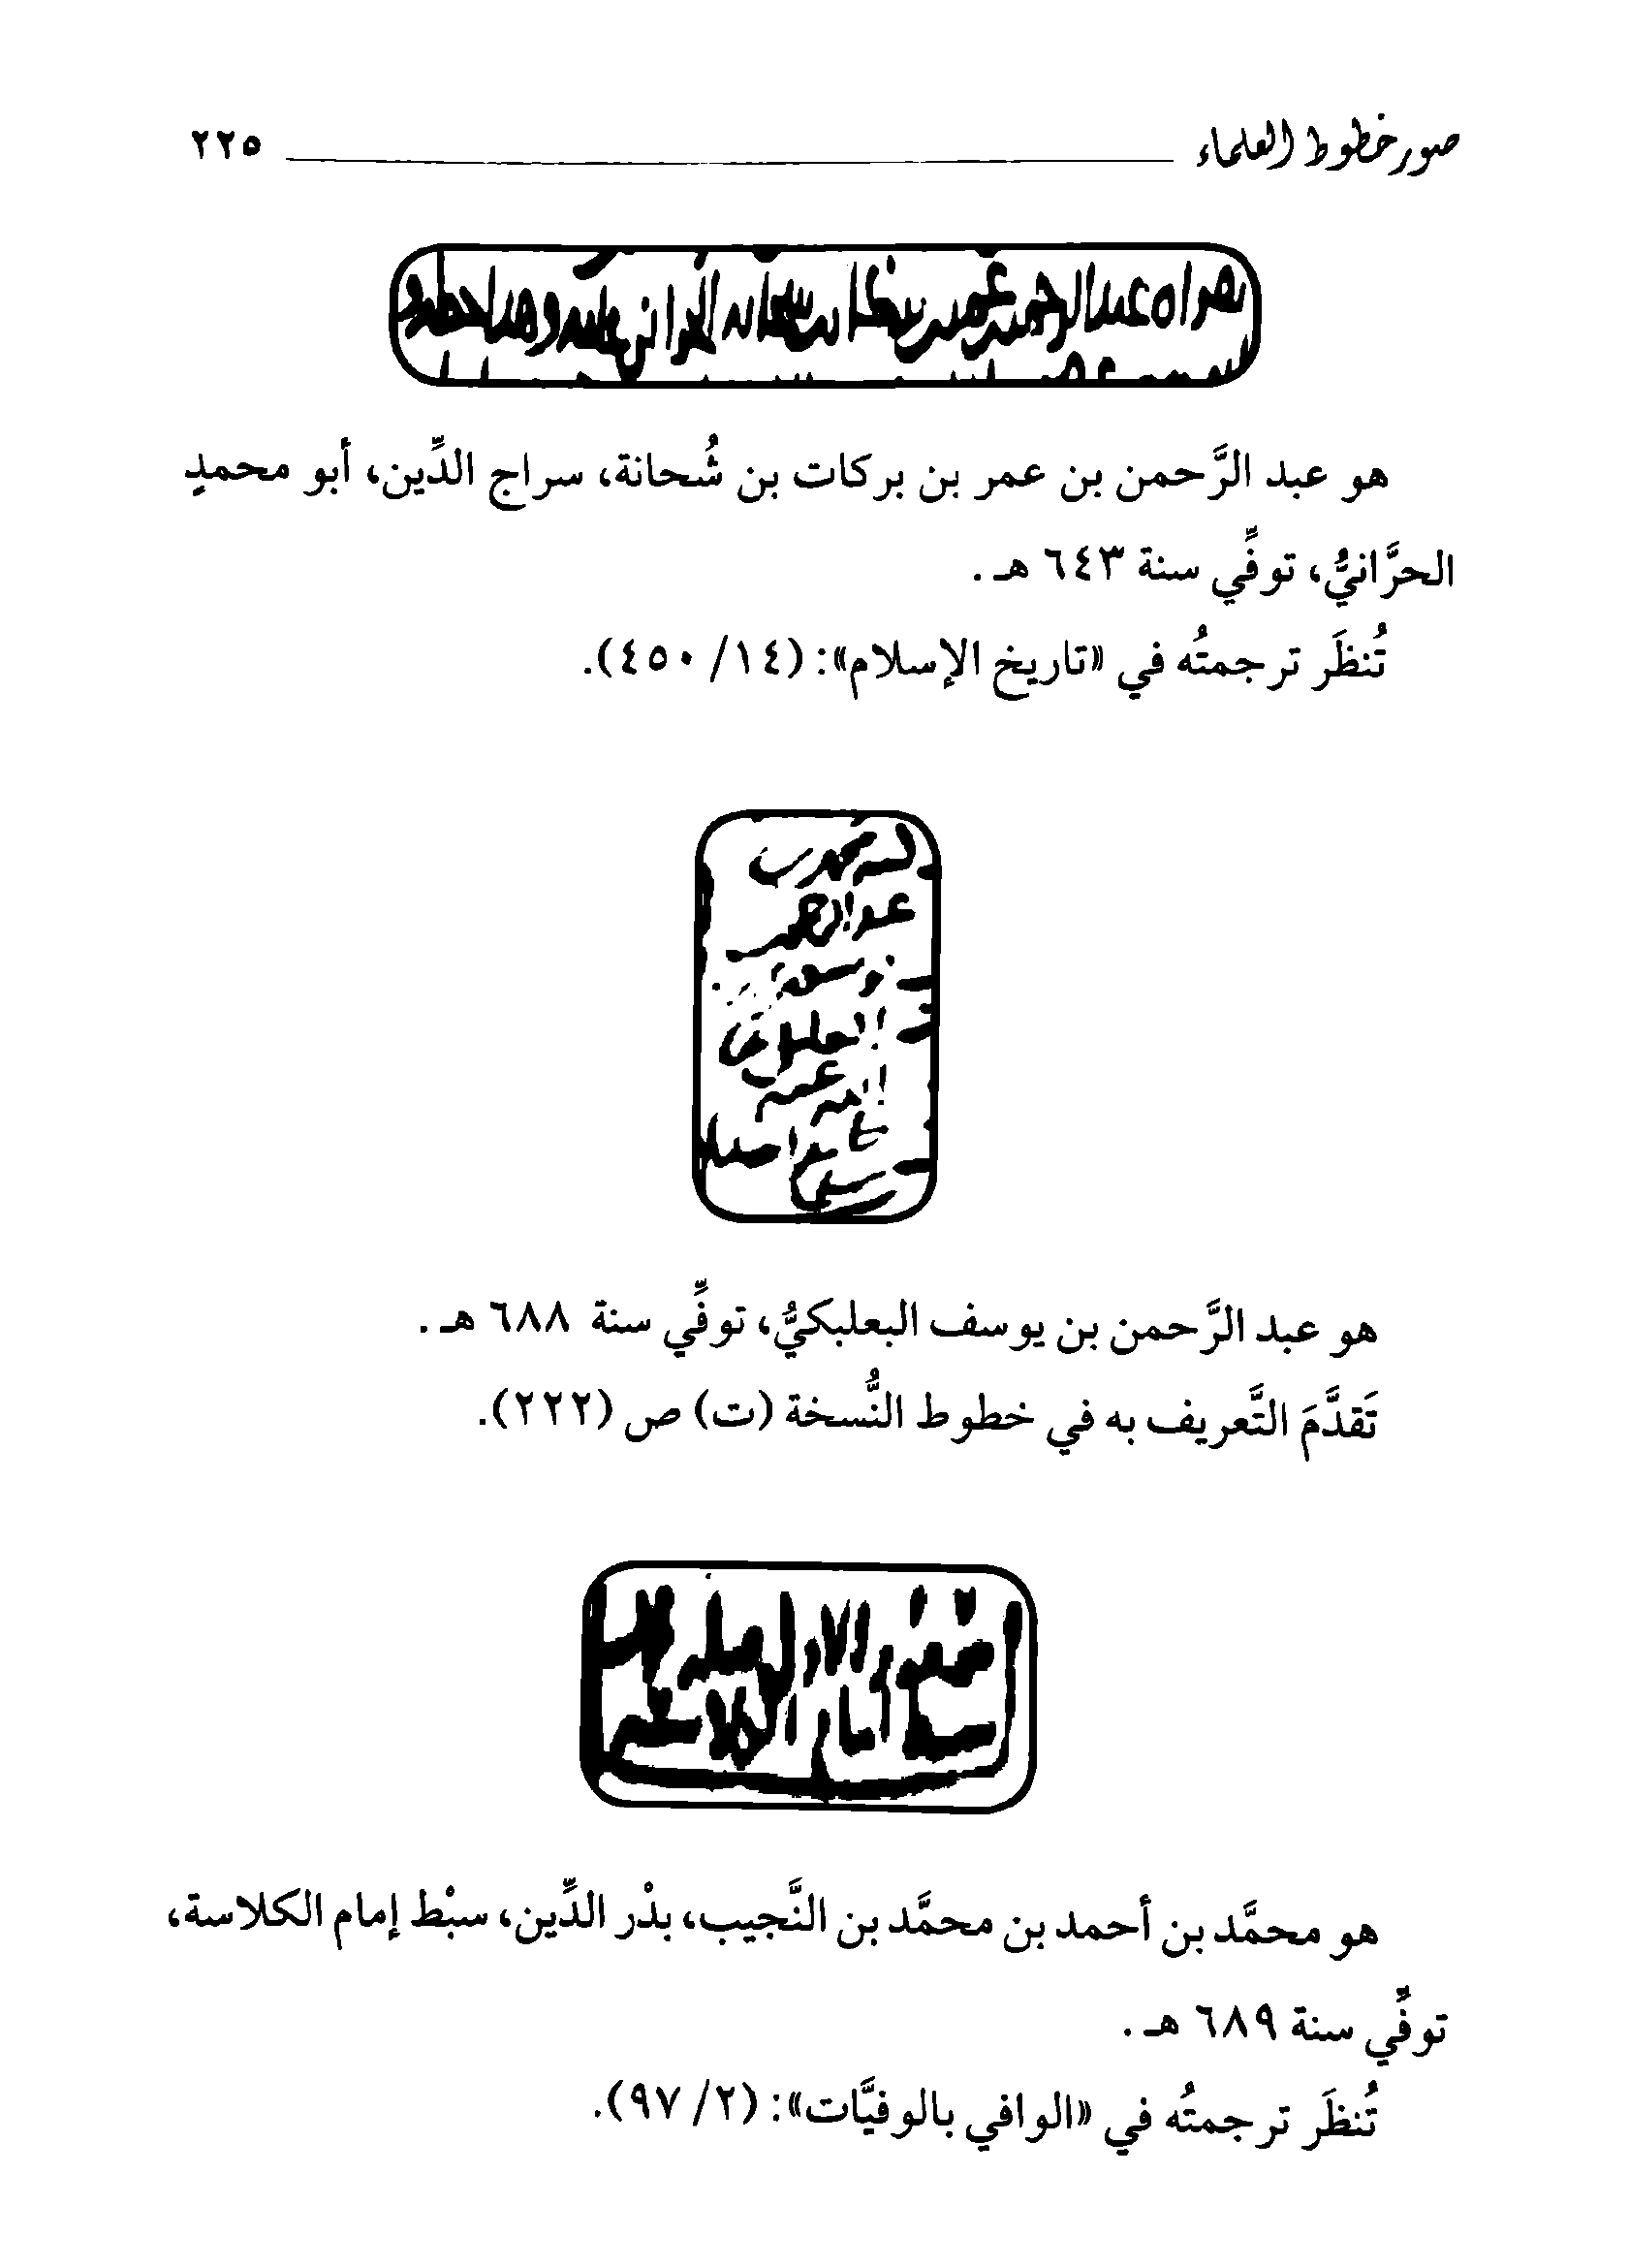 صور خطوط العلماء ٢٢٥
عبد الرحمن بن عمر بن بركات بن شحانة الحراني
هو عبد الرَّحمن بن عمر بن بركات بن شُحانة، سراج الدِّين، أبو محمدٍ
الحرَّانيُّ، توفِّي سنة ٦٤٣ هـ.
تُنظَر ترجمتُه في «تاريخ الإسلام»: (١٤/ ٤٥٠).
عبد الرحمن
هو عبد الرَّحمن بن يوسف البعلبكيُّ، توفِّي سنة ٦٨٨ هـ.
تَقدَّمَ التَّعريف به في خطوط النُّسخة (ت) ص (٢٢٢).
سبط امام الكلاسة
هو محمَّد بن أحمد بن محمَّد بن النَّجيب، بدْر الدِّين، سبْط إمام الكلاسة،
توفِّي سنة ٦٨٩ هـ.
تُنظَر ترجمتُه في «الوافي بالوفيَّات»: (٢/ ٩٧).